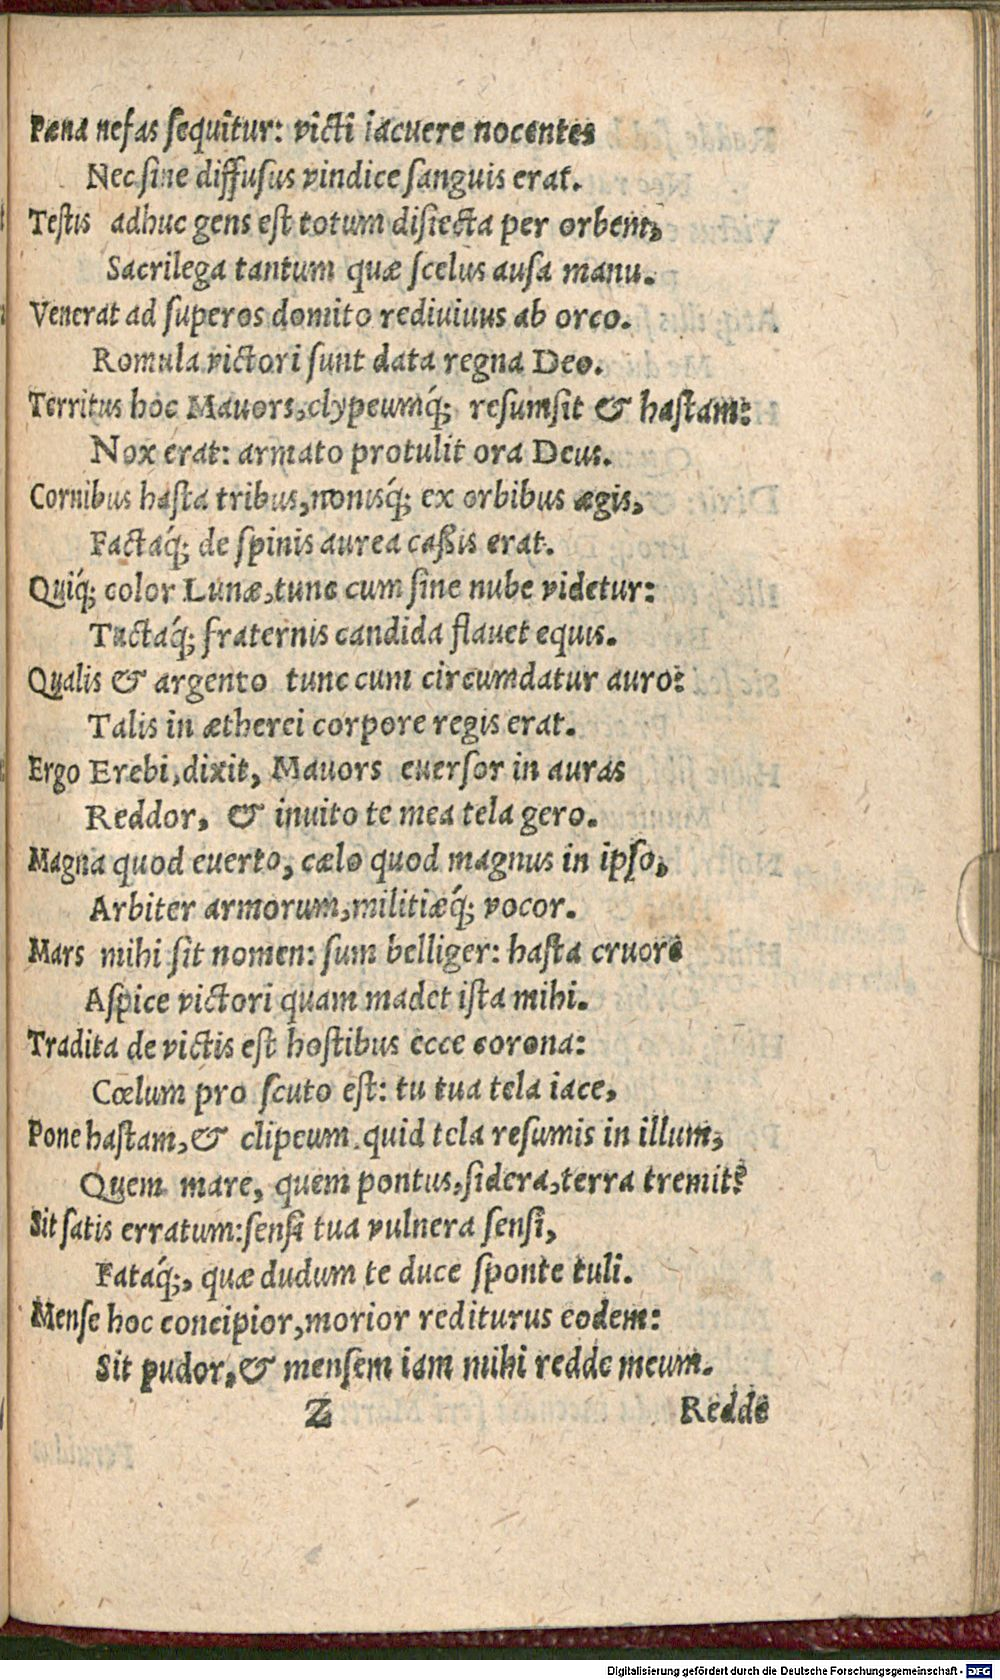 Pœna nefas sequitur: victi iacuere nocentes
Nec sine diffusus vindice sanguis erat.
Testis adhuc gens est totum disiecta per orbem,
Sacrilega tantum quæ scelus ausa manu.
Venerat ad superos domito rediuiuus ab orco.
Romula victori sunt data regna Deo.
Territus hoc Mauors, clypeumq́; resumsit & hastam:
Nox erat: armato protulit ora Deus.
Cornibus hasta tribus, nonisq́; ex orbibus ægis,
Factaq́; de spinis aurea caßis erat.
Quiq́; color Lunæ, tunc cum sine nube videtur:
Tactaq́; fraternis candida flauet equis.
Qualis & argento tunc cum circumdatur auro:
Talis in ætherei corpore regis erat.
Ergo Erebi, dixit, Mauors euersor in auras
Reddor, & inuito te mea tela gero.
Magna quod euerto, cælo quod magnus in ipso,
Arbiter armorum, militiæq́; vocor.
Mars mihi sit nomen: sum belliger: hasta cruore
Aspice victori quam madet ista mihi.
Tradita de victis est hostibus ecce corona:
Cœlum pro scuto est: tu tua tela iace,
Pone hastam, & clipeum. quid tela resumis in illum,
Quem mare, quem pontus, sidera, terra tremit?
Sit satis erratum: sensi tua vulnera sensi,
Fataq́;, quæ dudum te duce sponte tuli.
Mense hoc concipior, morior rediturus eodem:
Sit pudor, & mensem iam mihi redde meum.
Z Redde
Digitalisierung gefördert durch die Deutsche Forschungsgemeinschaft - DFG